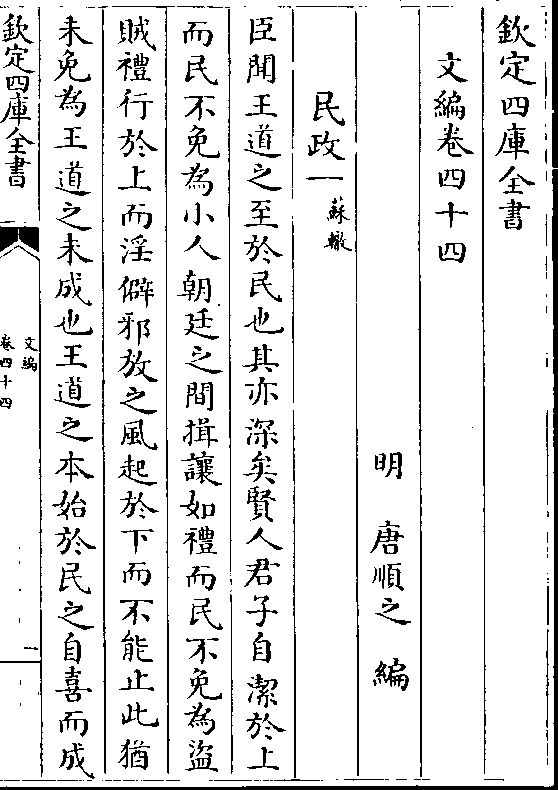 欽定四庫全書
文編卷四十四
明 唐順之 編
民政一 蘇轍
臣聞王道之至於民也其亦深矣賢人君子自潔於上
而民不免為小人朝廷之間揖讓如禮而民不免為盜
賊禮行於上而淫僻邪放之風起於下而不能止此猶
未免為王道之未成也王道之本始於民之自喜而成
欽定四庫全書
文編
卷四十四
一